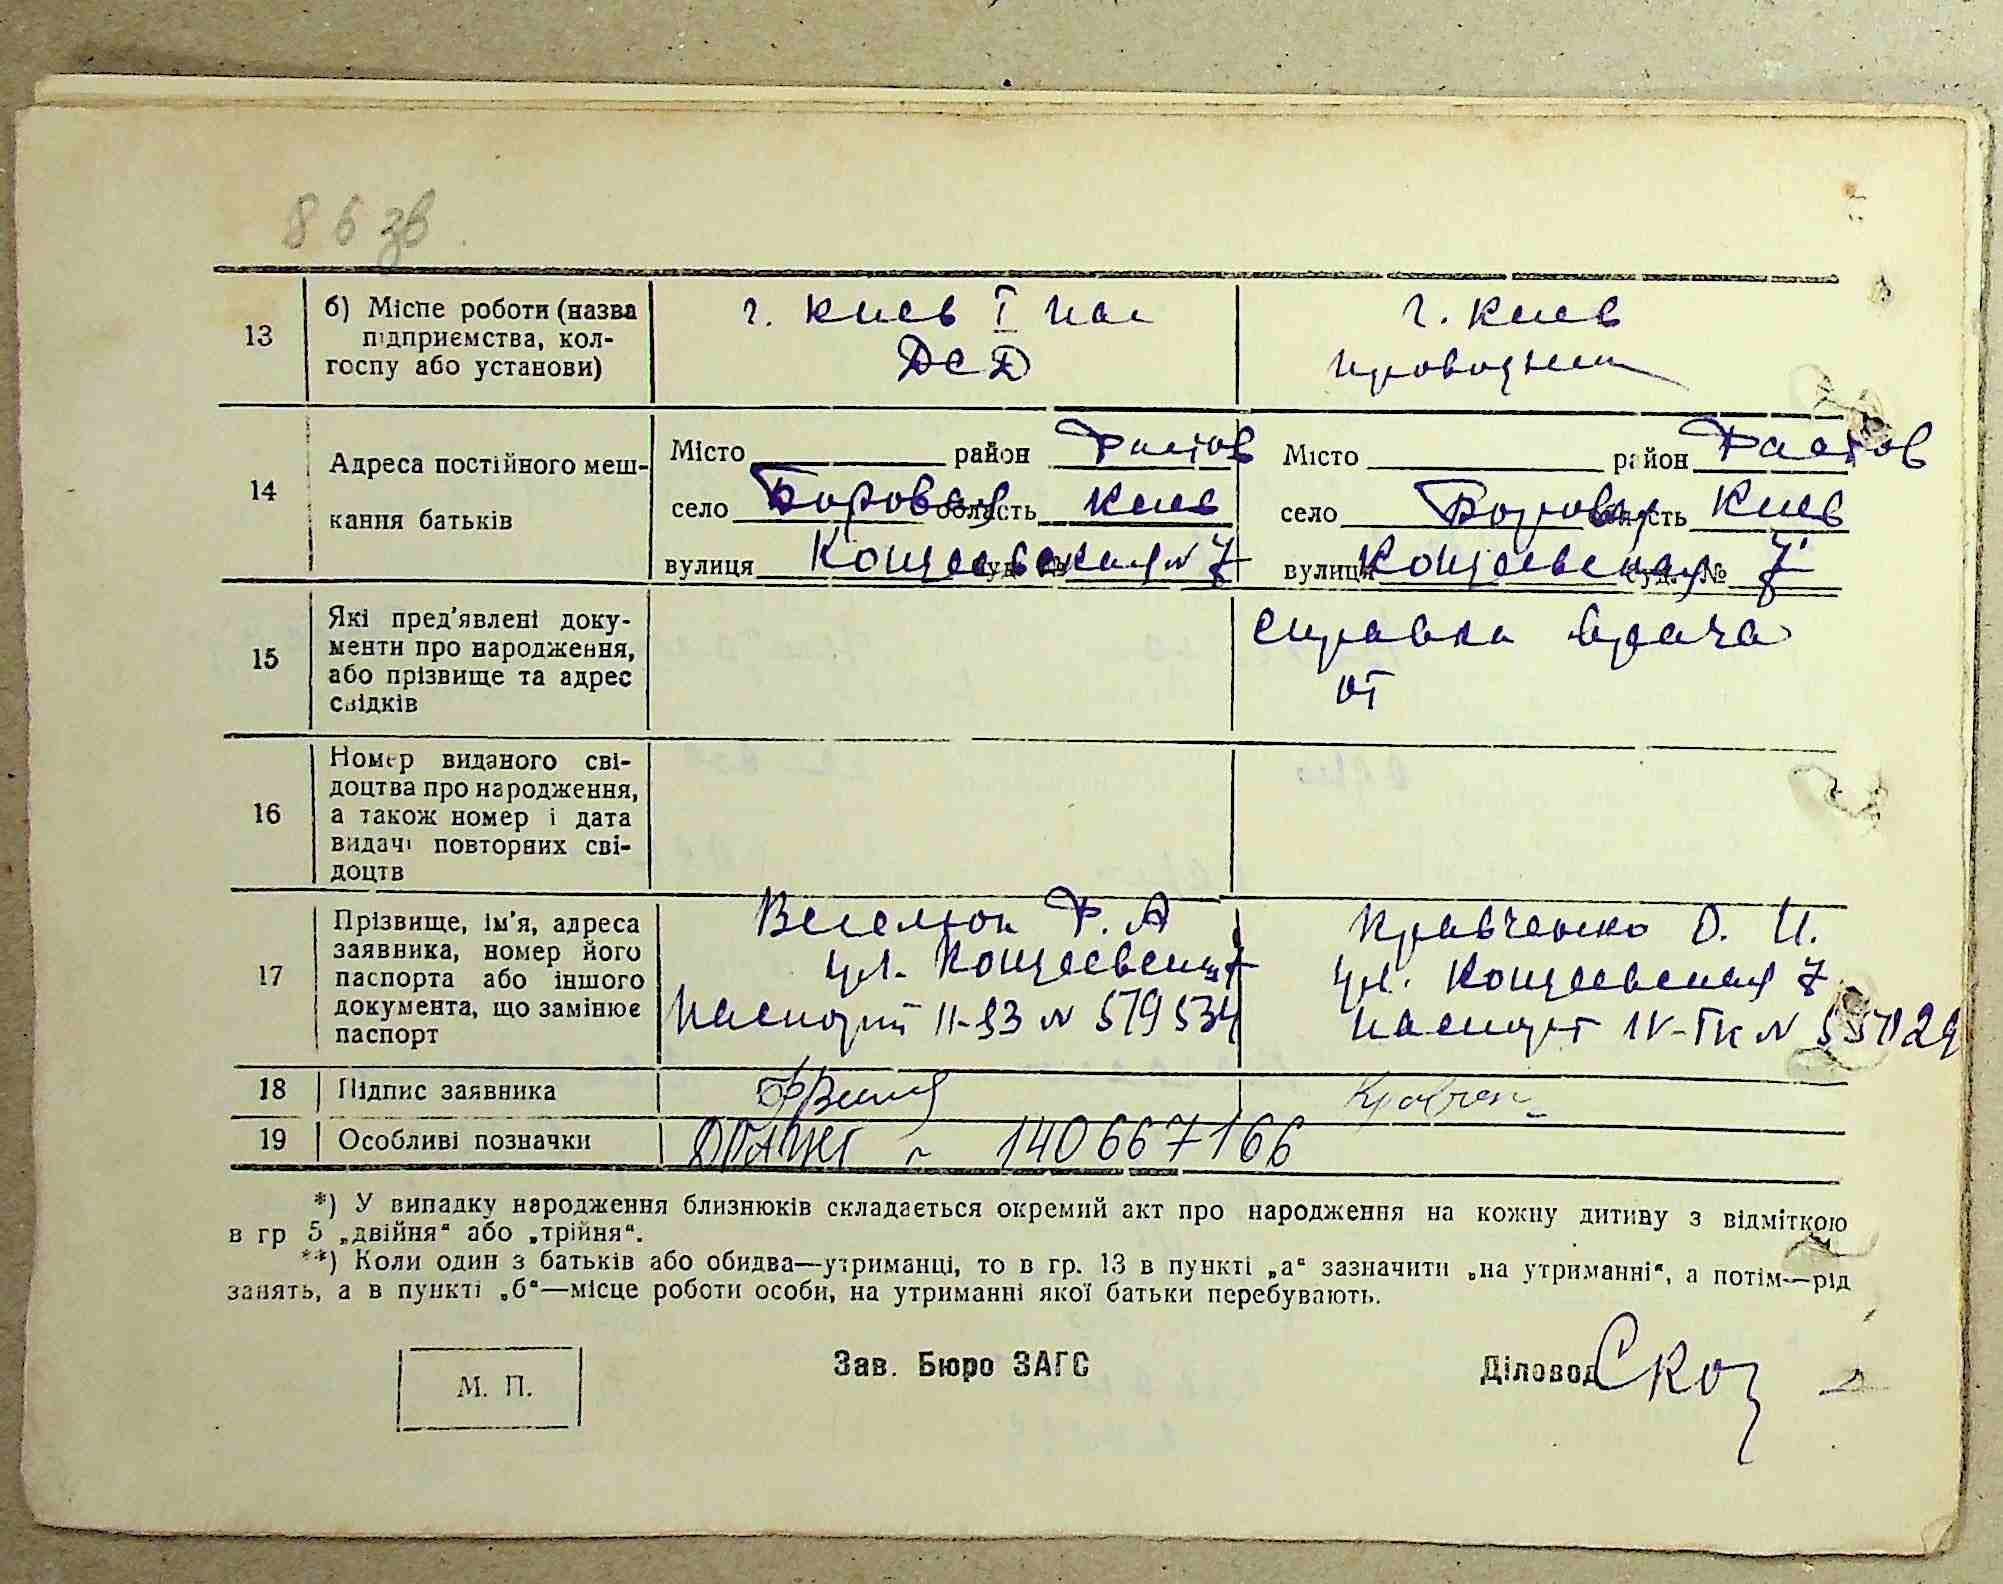 86 зв
13
б) Місце роботи (назва підприємства, колгоспу або установи)
г. Киев I
ДСД
г. Киев
14
Адреса постійного меш-
кання батьків
Місто район Фастов
село Боровая область Киев
вулиця Кощеевская буд. № 7
Місто район Фастов
село Боровая область Киев
вулиця Кощеевская буд. № 7
15
Які пред'явлені доку-
менти про народження,
або прізвище та адрес
свідків
справка врача
от
16
Номер виданого сві-
доцтва про народження,
а також номер і дата
видачі повторних сві-
доцтв
17
Прізвище, ім'я, адреса
заявника, номер його
паспорта або іншого
документа, що замінює
паспорт
Ф. А
ул. Кощеевская 7
Паспорт № 579534
Кравченко О. И.
ул. Кощеевская 7
паспорт IV-ТК №
18
Підпис заявника
19
Особливі позначки
140667166
*) У випадку народження близнюків складається окремий акт про народження на кожну дитину з відміткою
в гр 5 „двійня“ або „трійня“.
**) Коли один з батьків або обидва—утриманці, то в гр. 13 в пункті „а“ зазначити „на утриманні“, а потім—рід
занять, а в пункті „б“—місце роботи особи, на утриманні якої батьки перебувають.
М. П.
Зав. Бюро ЗАГС
Діловод